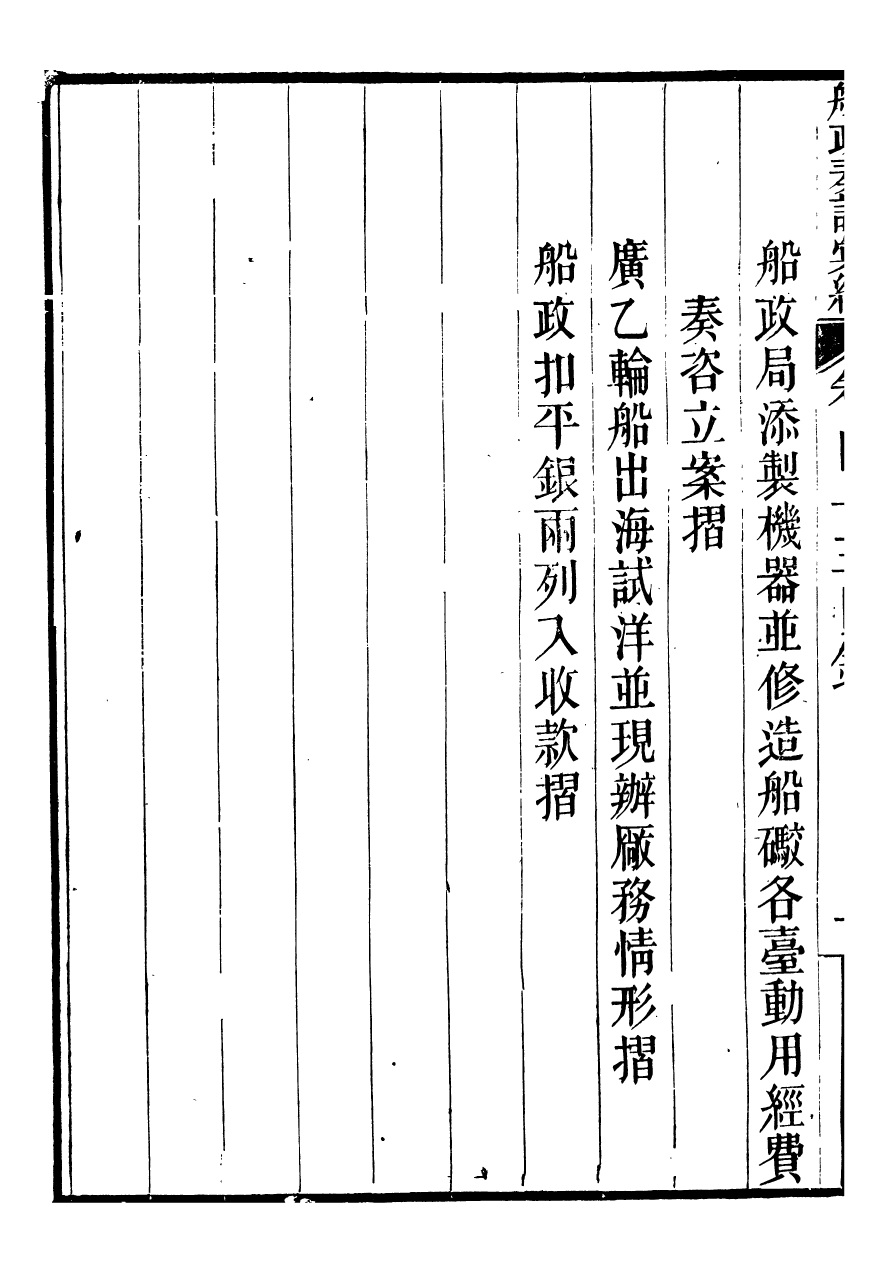 船政局添製機器並修造船礮各臺動用經費
奏咨立案摺
廣乙輪船出海試洋並現辦厰務情形摺
船政扣平銀兩列入收款摺